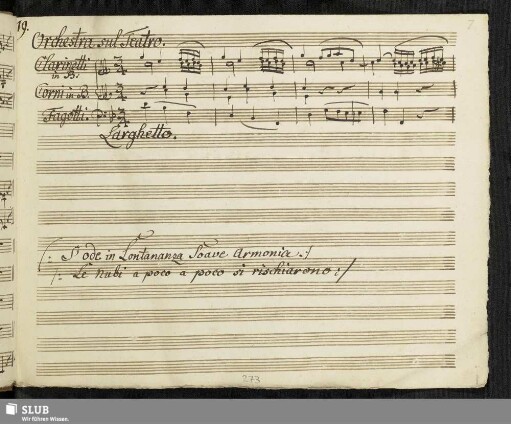 19.
7
Orchestra sul Teatro.
Clarinetti
in B.
Corni in B.
Fagotti.
Larghetto.
(: S' ode in Lontananza Soave Armonia :/
/: Le nubi a poco a poco si rischiarono :/
273
SLUB
Wir führen Wissen.